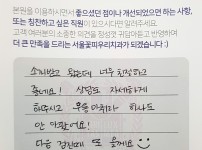 본원을 이용하시면서 좋으셨던 점이나 개선되었으면 하는 사항,
또는 칭찬하고 싶은 직원이 있으시다면 알려주세요.
고객 여러분의 소중한 의견을 정성껏 귀담아듣고 반영하여
더 큰 만족을 드리는 서울꽃피우리치과가 되겠습니다 :)
소개받고 왔는데 너무 친절하고
좋네요! 상담도 자세하게
해주시고 무통마취라 하나도
안 아팠어요!
다음 검진때 또 올게요